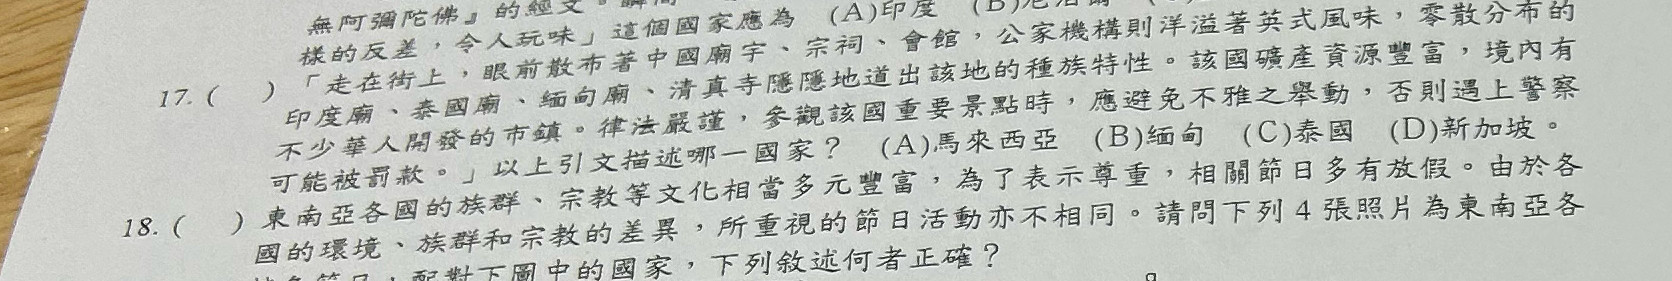 無阿彌陀佛』的經文。瞬間
樣的反差，令人玩味」這個國家應為　(A)印度　(B)尼泊爾
17. (　　)「走在街上，眼前散布著中國廟宇、宗祠、會館，公家機構則洋溢著英式風味，零散分布的
印度廟、泰國廟、緬甸廟、清真寺隱隱地道出該地的種族特性。該國礦產資源豐富，境內有
不少華人開發的市鎮。律法嚴謹，參觀該國重要景點時，應避免不雅之舉動，否則遇上警察
可能被罰款。」以上引文描述哪一國家？　(A)馬來西亞　(B)緬甸　(C)泰國　(D)新加坡。
18. (　　)東南亞各國的族群、宗教等文化相當多元豐富，為了表示尊重，相關節日多有放假。由於各
國的環境、族群和宗教的差異，所重視的節日活動亦不相同。請問下列 4 張照片為東南亞各
配對下圖中的國家，下列敘述何者正確？